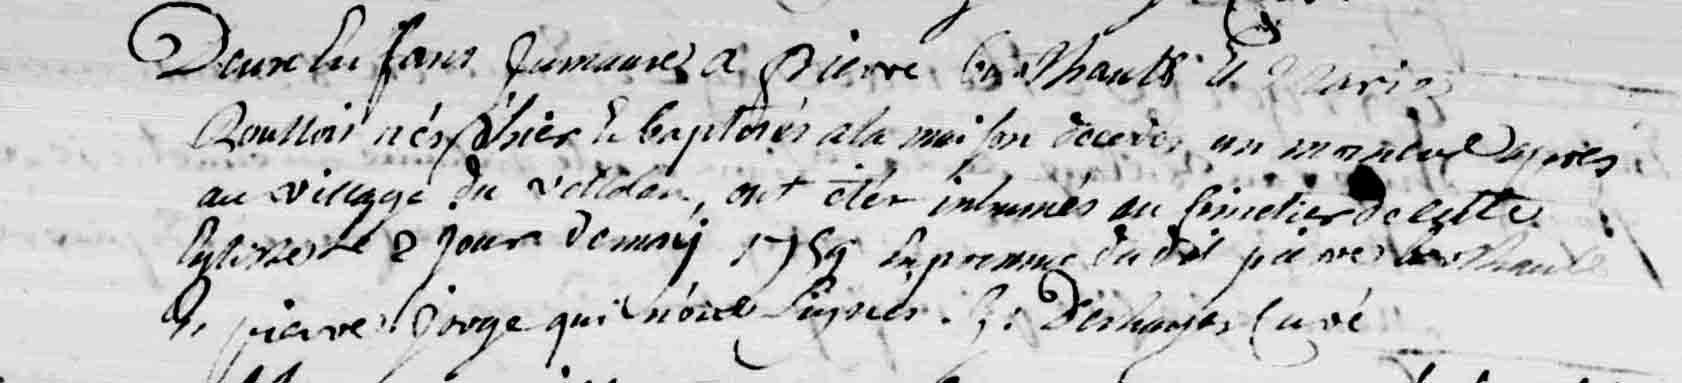 Deux Enfans Jumaux a pierre berthault Et Marie
Roullois nés d'hier Et baptisés a la maison decedes un moment apres
au village du , ont éter inhumés au Cimetier de cette
Eglise le 2 Jour de may 1759 En presence du dit pierre berthault
Et pierre Jorge qui n'ont Signés. J: Deshayes Curé